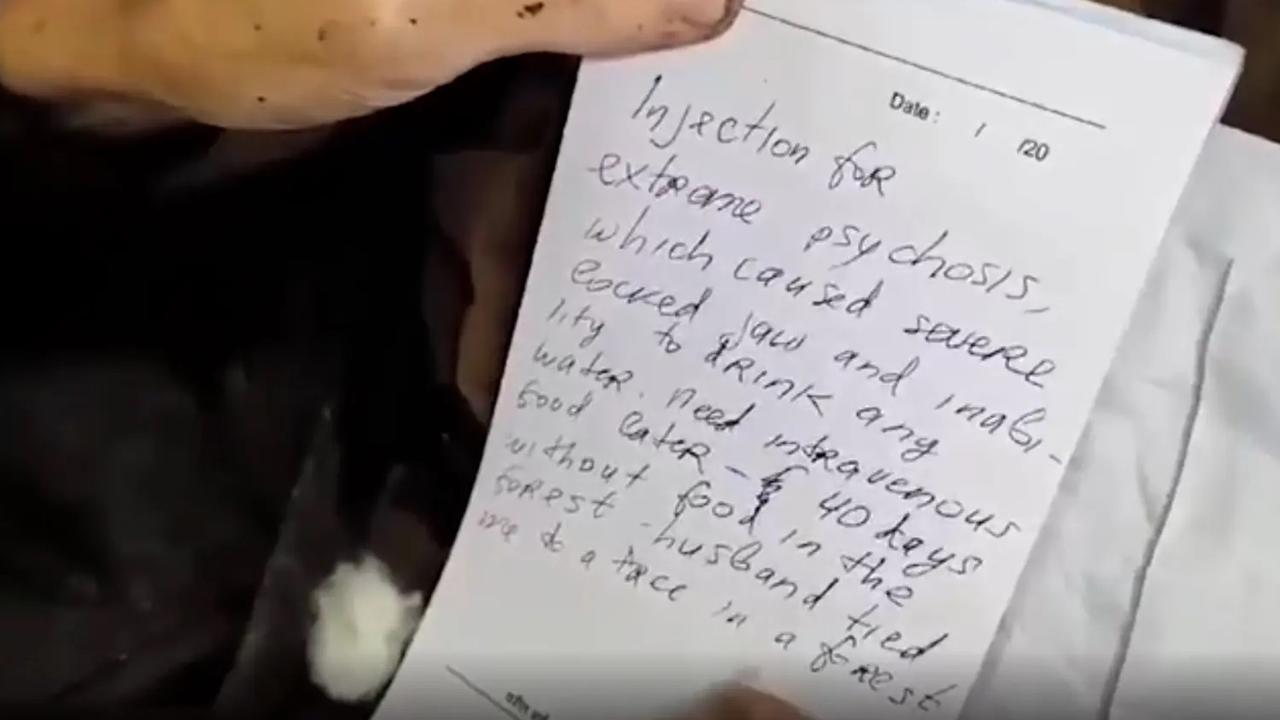 Date: / /20
Injection for
extrame psychosis,
which caused severe
locked jaw and inabi-
lity to drink any
water. need intravenous
food later - 40 days
without food in the
forest - husband tied
me to a tree in a forest